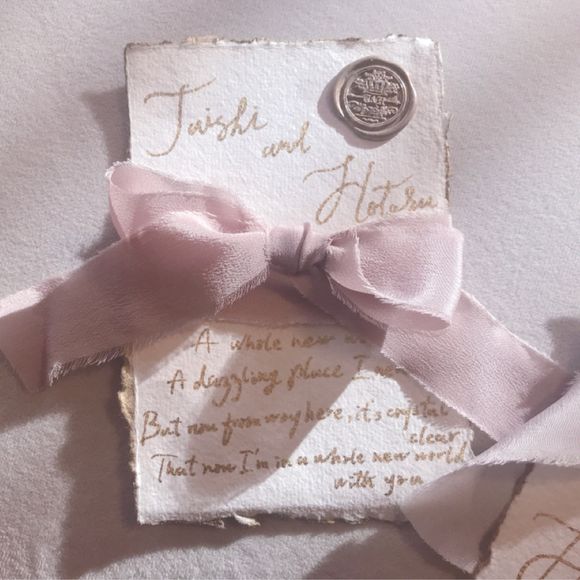 Taishi
and
Hotaru
A whole new
A dazzling place I
But now from way here, it's crystal
clear
That now I'm in a whole new world
with you